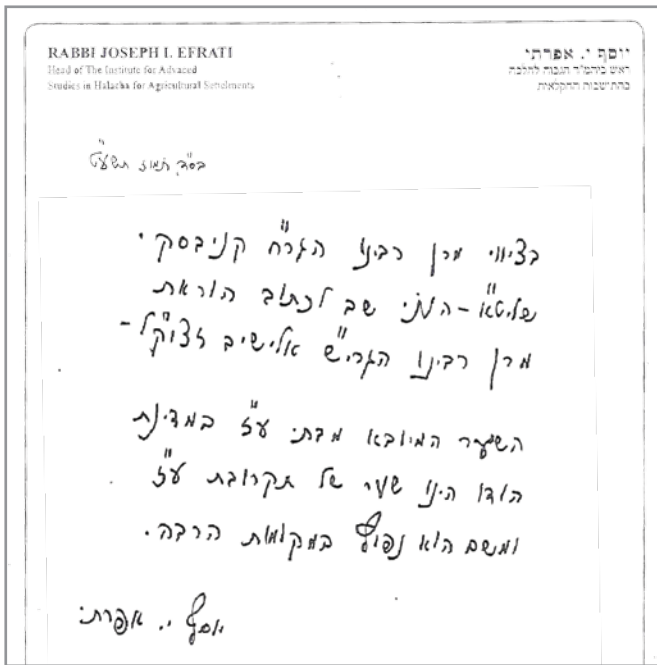 RABBI JOSEPH I. EFRATI
Head of The Institute for Advaced
Studies in Halacha for Agricultural Settelments
יוסף י. אפרתי
ראש ביהמ"ד הגבוה להלכה
בהתישבות החקלאית
בס"ד, תמוז תשע"ט
בציווי מרן רבינו הגר"ח קניבסקי
שליט"א - הנני שב לכתוב הוראת
מרן רבינו הגרי"ש אלישיב זצוק"ל -
השער המיובא מבתי ע"ז במדינת
הודו הינו שער של תקרובת ע"ז
ומשם הוא נפוץ במקומות הרבה.
יוסף י. אפרתי